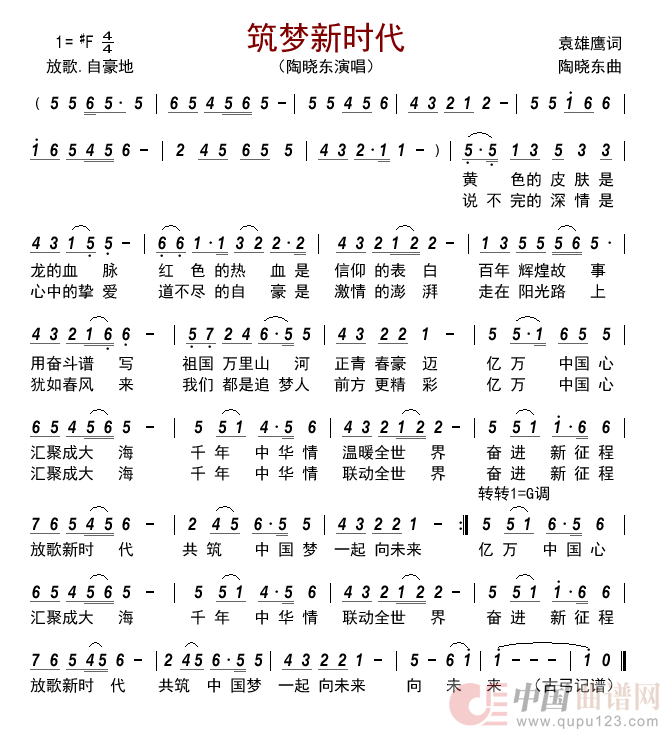 筑梦新时代
1=♯F 4/4
袁雄鹰词
放歌.自豪地
（陶晓东演唱）
陶晓东曲
( 5 5 6 5· 5 | 6 6 5 4 5 6 5 - | 5 5 4 5 4 5 - | 4 3 2 1 2 - | 5 5 1 6 6
1 6 5 4 5 6 - | 2 4 5 6 5 5 | 4 3 2· 1 1 - ) | 5· 5 1 3 5 3 3
黄 色的皮肤是
说不完的深情是
4 3 1 5 5 - | 6 6 1· 1 3 2 2· 2 | 4 3 2 1 2 2 - | 1 3 5 5 5 6 5·
龙的血 脉 红 色的热 血是 信仰的表白 百年 辉煌故 事
心中的挚爱 道不尽的自 豪是 激情的澎湃 走在 阳光路 上
4 3 2 2 1 6 6 - | 5 7 2 4 6· 5 5 | 4 3 2 2 1 2 - | 5 5· 1 6 5 5
用奋斗谱 写 祖国 万里山 河 正青春豪迈 亿万 中国心
犹如春风 来 我们 都是追梦人 前方更精彩 亿万 中国心
6 5 4 5 6 5 - | 5 5 1 4· 5 6 | 4 3 2 1 2 2 - | 5 5 1 1· 6 6
汇聚成大 海 千年 中华情 温暖全世界 奋进 新征程
汇聚成大 海 千年 中华情 联动全世界 奋进 新征程
转转1=G调
7 6 5 4 5 6 - | 2 4 5 6· 5 5 | 4 3 2 2 1 - :‖ 5 5 1 6· 5 6
放歌新时 代 共筑 中国梦 一起向未来 亿万 中国心
6 5 4 5 6 5 - | 5 5 1 4· 5 6 | 4 3 2 1 2 2 - | 5 5 1 1· 6 6
汇聚成大 海 千年 中华情 联动全世界 奋进 新征程
7 6 5 4 5 6 - | 2 4 5 6· 5 5 | 4 3 2 2 1 - | 5 - 6 1 | 1 - - - | 1 0 ‖
放歌新时 代 共筑 中国梦 一起向未来 向 未 来 （古弓记谱）
中国曲谱网
www.qupu123.com